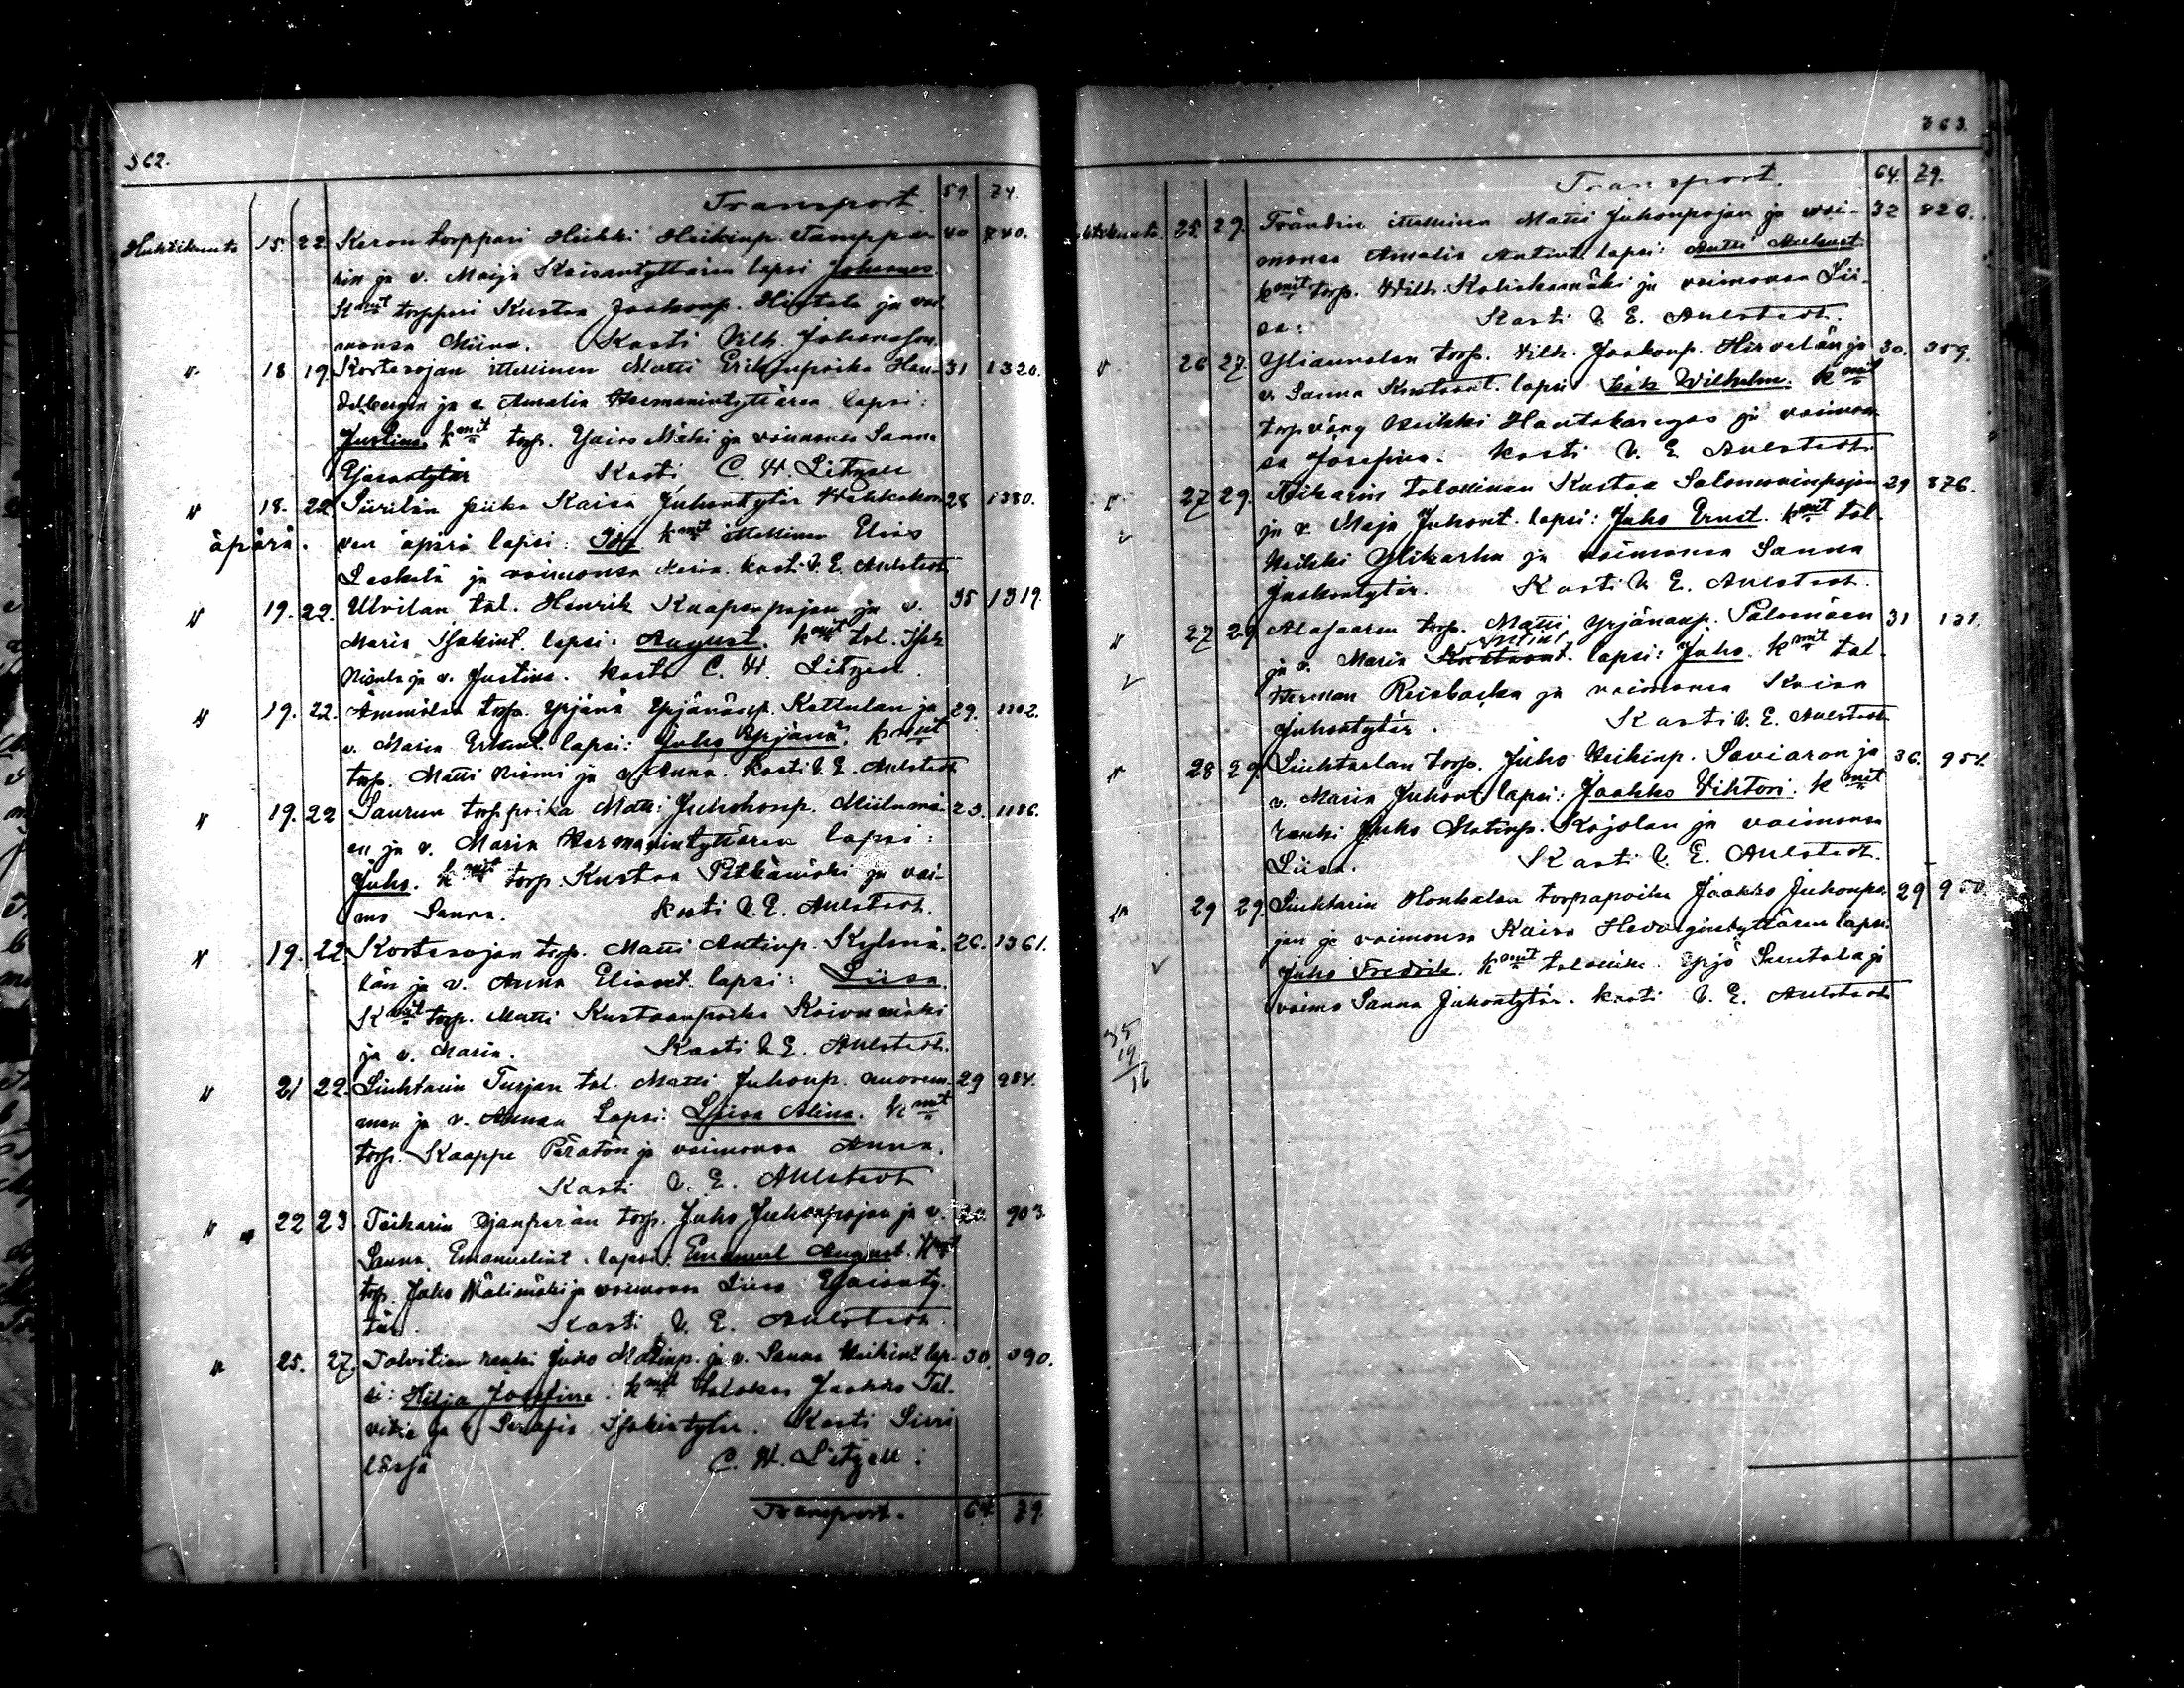 362.
Transport. 59 74.
Huhtikuuta 15. 22. Keron torppari Heikki Heikinp. Tamppa- 40 740.
rin ja v. Maija Kaisantyttären lapsi Johannes.
Kmit torppari Kustaa Jaakonp. Hietala ja vai
monsa Miina. Kasti Vilh. Johansson.
" 18 19. Kortesojan itsellinen Matti Erikinpoika Han- 31 1320.
delbergin ja v. Amalia Hermanintyttären lapsi:
Justina. kmit torp. Mäki ja vaimonsa Sanna
Kasti, C. W. Litzell
" 18. 22. Siirilän piika Kaisa Juhontytär 28 1380.
äpärä. ven äpärä lapsi: kmit itsellinen Elias
Leskelä ja vaimonsa Maria. kasti V. E. Ahlstedt
" 19. 22. Ulvilan tal. Henrik Kaaponpojan ja v. 35 1319.
Maria lapsi: August. kmit tal.
ja v. Justina. kasti C. W. Litzell.
" 19. 22. Ämmälän torp. Yrjänä Yrjänänp. Kettulan ja 29. 1102.
v. Maria lapsi: Juho Yrjänä. kmit
torp. Matti Niemi ja v. Anna. Kasti V. E. Ahlstedt
" 19. 22 Saurun torp.poika Matti Juhohonp. Miilumä- 23. 1186.
en ja v. Maria Hermanintyttären lapsi:
Juho. kmit torp. Kustaa Pitkämäki ja vai-
mo Sanna. kasti V. E. Ahlstedt.
" 19. 22. Kortesojan torp. Matti Antinp. Kylmä- 26. 1361.
län ja v. Anna Eliaant. lapsi: Liisa.
Kmit torp. Matti Kustaanpoika Koivumäki
ja v. Maria. Kasti V. E. Ahlstedt.
" 21 22. Liuhtarin Turjan tal. Matti Juhonp. nuorem- 29 984.
man ja v. Annan Lapsi: Liisa Alina. kmit
torp. Kaappo Perätön ja vaimonsa Anna.
Kasti V. E. Ahlstedt
" 22 23. Teikarin Ojanperän torp. Juho Juhonpojan ja v. 20. 903.
Sanna Emanuelint. lapsi: Emanuel August. Kmit
torp. Juho Välimäki ja vaimonsa Liisa
tär. Kasti V. E. Ahlstedt.
" 25. 27. Talvitien renki Juho Matinp. ja v. Sanna Heikint. lap- 30. 390.
si: Hilja Josefiina: kmit talokas Jaakko Tal-
vitie ja v. Serafia Kasti Siiri
lässä C. W. Litzell:
Transport. 64 79

363.
Transport. 64. 79.
Huhtikuuta. 25. 29. Fräntin itsellinen Matti Juhonpojan ja vai- 32 820.
monsa Amalia Antint. lapsi: Antti Aukust
kmit torp. Wilh. ja vaimonsa Lii-
sa: Kasti V. E. Ahlstedt.
" 26 27. Yliannalan torp. Vilh. Jaakonp. Hirvelän ja 30. 359.
v. Sanna Kustaant. lapsi: Wilhelm. kmit
torp.väng Heikki Hautakangas ja vaimon
sa Josefina. kasti V. E. Ahlstedt
" 27 29. Teikarin talollinen Kustaa Salomoninpojan 29 876.
ja v. Maja Juhont. lapsi: Juho Ernst. kmit tal.
Heikki Ylikarhu ja vaimonsa Sanna
Jaakontytär. Kasti V. E. Ahlstedt.
" 27 29 Alasaaren torp. Matti Yrjänänp. Palomäen 31 131.
ja v. Maria Kustaant. Antint. lapsi: Juho. kmit tal.
Herman Reisbacka ja vaimonsa Kaisa
Juhontytär. Kasti V. E. Ahlstedt
" 28 29. Liuhtarlan torp. Juho Heikinp. Saviaron ja 36. 951.
v. Maria Juhont. lapsi: Jaakko Vihtori. kmit
renki Juho Matinp. Kojolan ja vaimonsa
Liisa. Kasti V. E. Ahlstedt.
" 29 29. Liuhtarin Honkalan torpapoika Jaakko Juhonpo- 29 950.
jan ja vaimonsa Kaisa Hedvigintyttären lapsi.
Juho Fredrik. kmit talollinen Yrjö ja
vaimo Sanna Juhontytär. kasti V. E. Ahlstedt
35
19
16